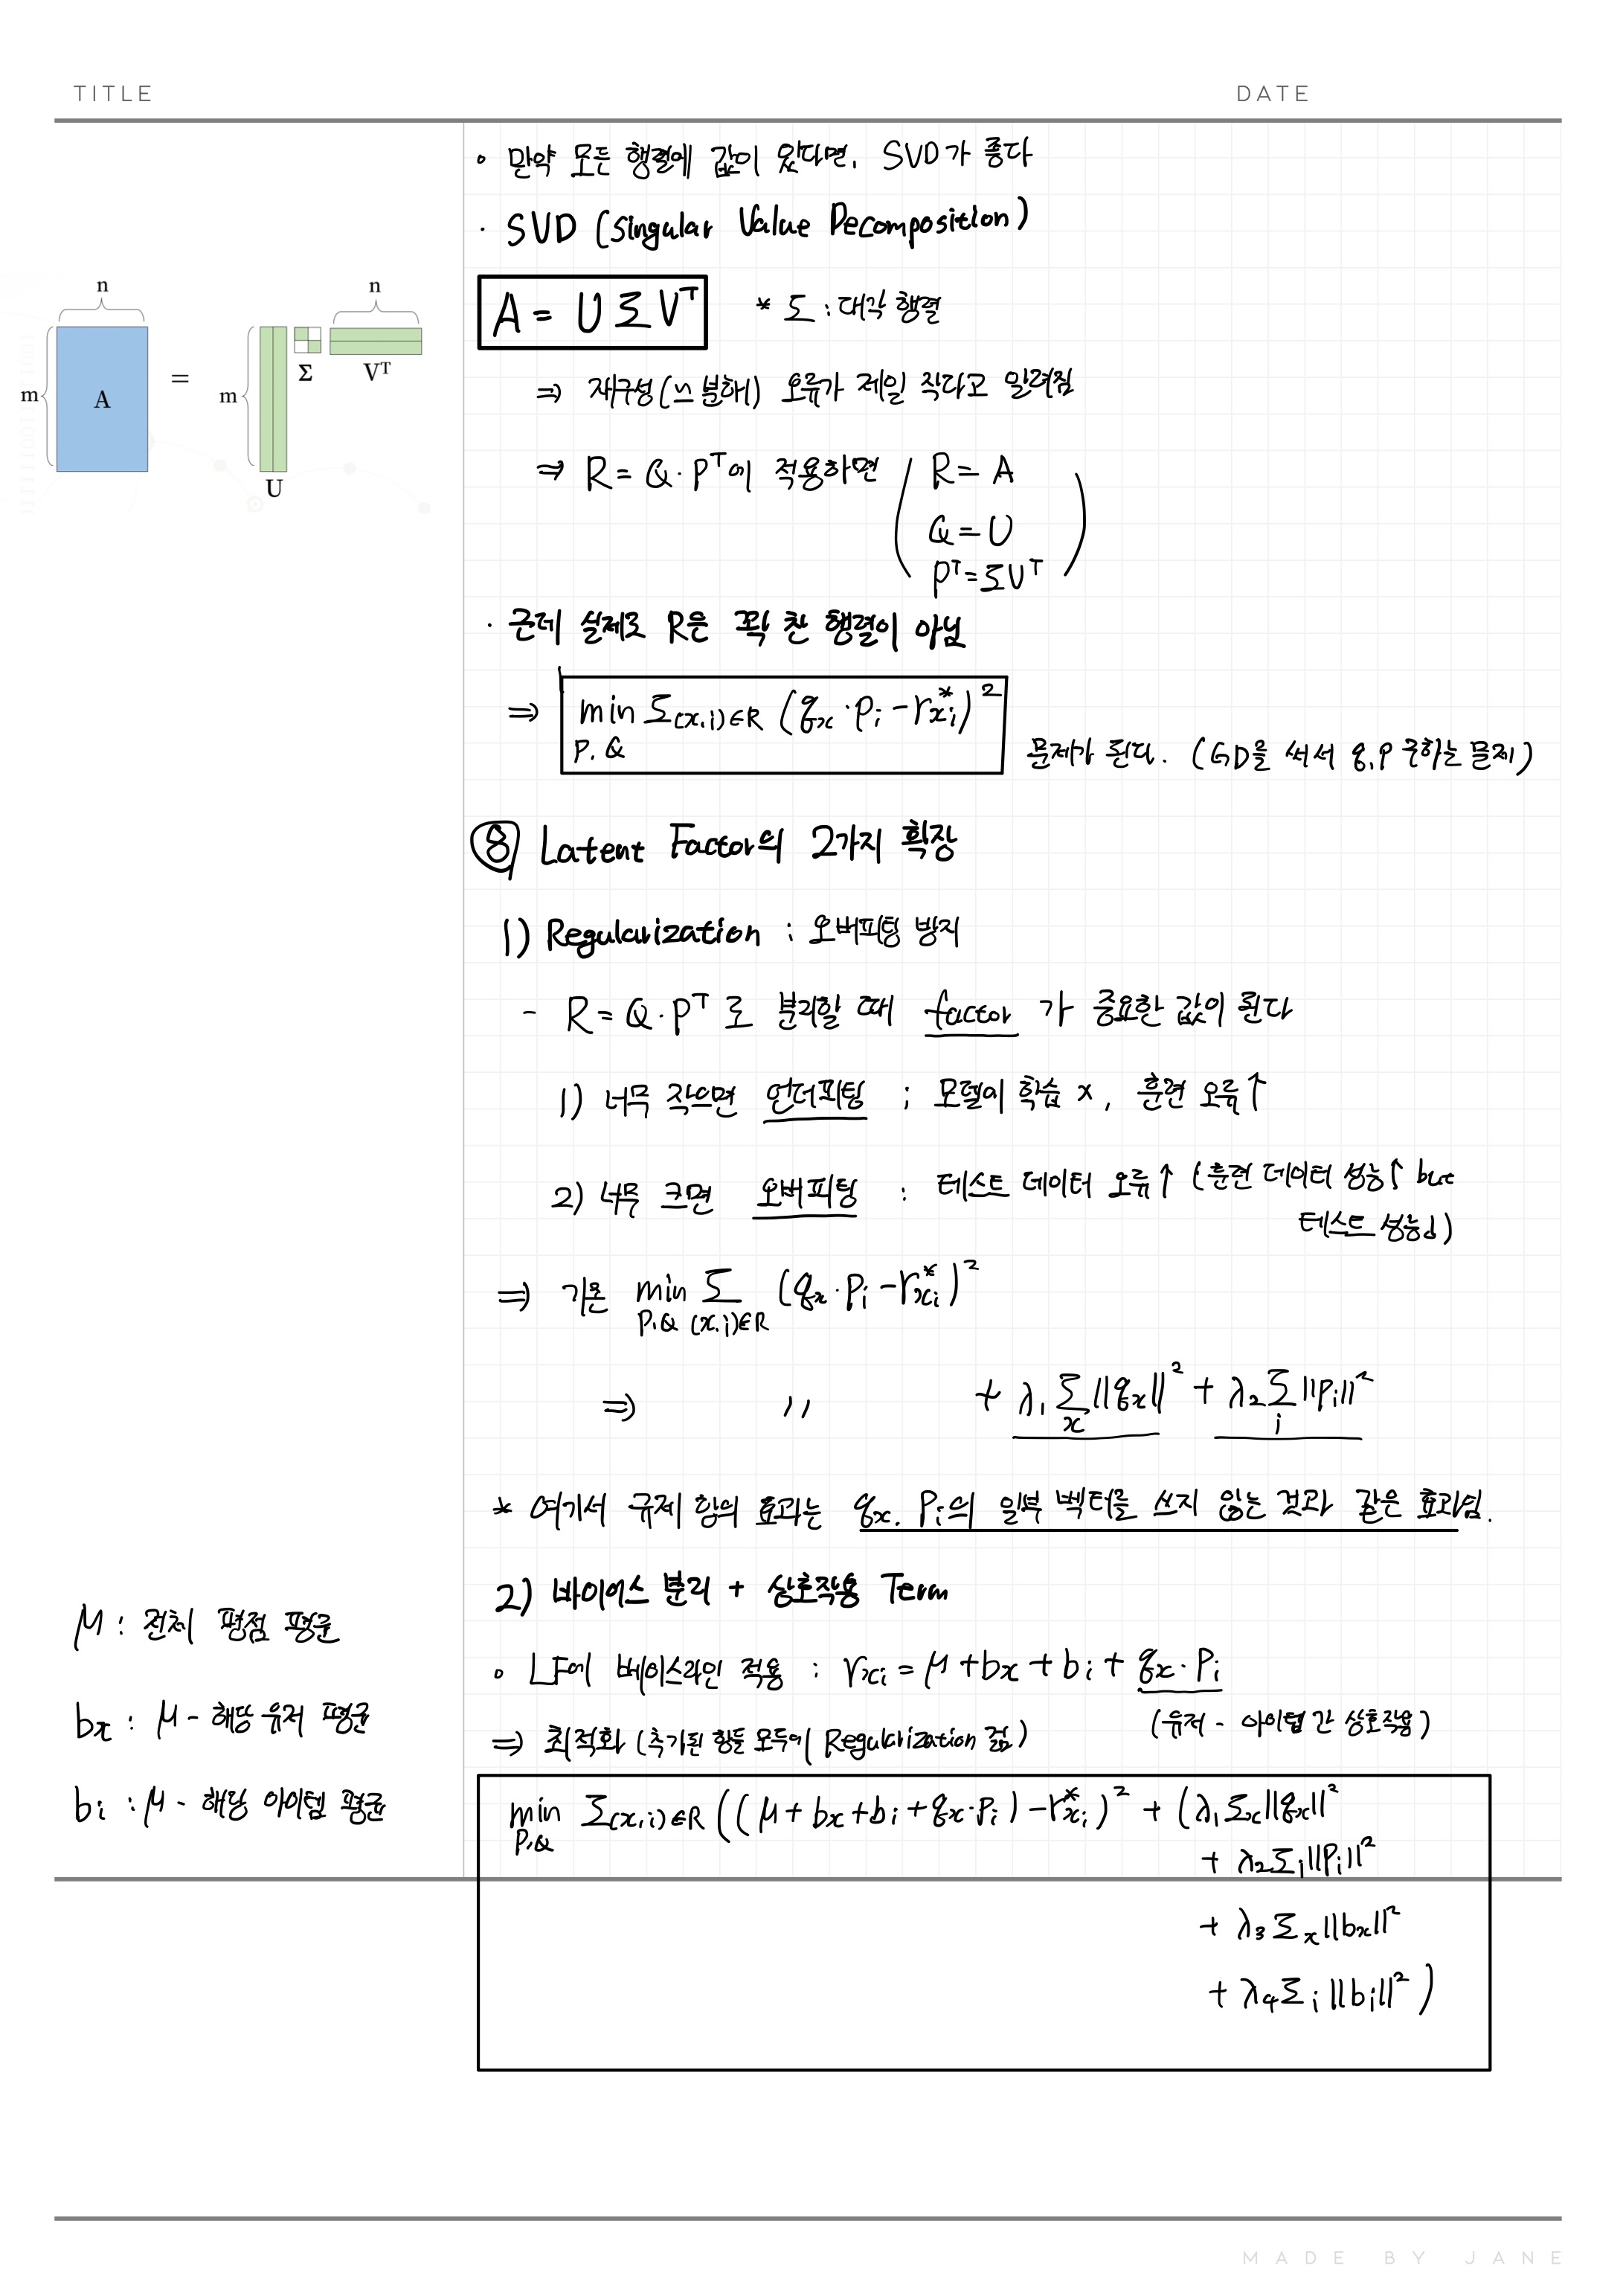 TITLE
DATE
• 만약 모든 행렬에 값이 있다면, SVD가 좋다
· SVD (Singular Value Decomposition)
A = U Σ Vᵀ   * Σ : 대각 행렬
n
m
A
=
m
U
Σ
n
Vᵀ
⇒ 재구성(≒분해) 오류가 제일 작다고 알려짐
⇒ R = Q·Pᵀ에 적용하면 ( R = A
Q = U
Pᵀ = ΣVᵀ )
· 근데 실제로 R은 꽉 찬 행렬이 아님
⇒ min Σ(x,i)∈R (qx · pi − r*xi)²
P, Q
문제가 된다. (GD를 써서 q,p 구하는 문제)
⑧ Latent Factor의 2가지 확장
1) Regularization : 오버피팅 방지
- R = Q·Pᵀ 로 분리할 때 factor 가 중요한 값이 된다
1) 너무 작으면 언더피팅 ; 모델이 학습 x, 훈련 오류↑
2) 너무 크면 오버피팅 : 테스트 데이터 오류↑ (훈련 데이터 성능↑ but
테스트 성능↓)
⇒ 기존 min Σ (qx · pi − r*xi)²
P,Q (x,i)∈R
⇒ 〃 + λ₁ Σx ||qx||² + λ₂ Σi ||pi||²
* 여기서 규제 항의 효과는 qx, pi의 일부 벡터를 쓰지 않는 것과 같은 효과임.
2) 바이어스 분리 + 상호작용 Term
• LF에 베이스라인 적용 : rxi = μ + bx + bi + qx · pi
(유저 - 아이템 간 상호작용)
⇒ 최적화 (추가된 항들 모두에 Regularization 걺)
min Σ(x,i)∈R ((μ + bx + bi + qx·pi) − r*xi)² + (λ₁Σx||qx||²
P,Q
+ λ₂Σi||Pi||²
+ λ₃Σx||bx||²
+ λ₄Σi||bi||²)
μ : 전체 평점 평균
bx : μ - 해당 유저 평균
bi : μ - 해당 아이템 평균
MADE BY JANE